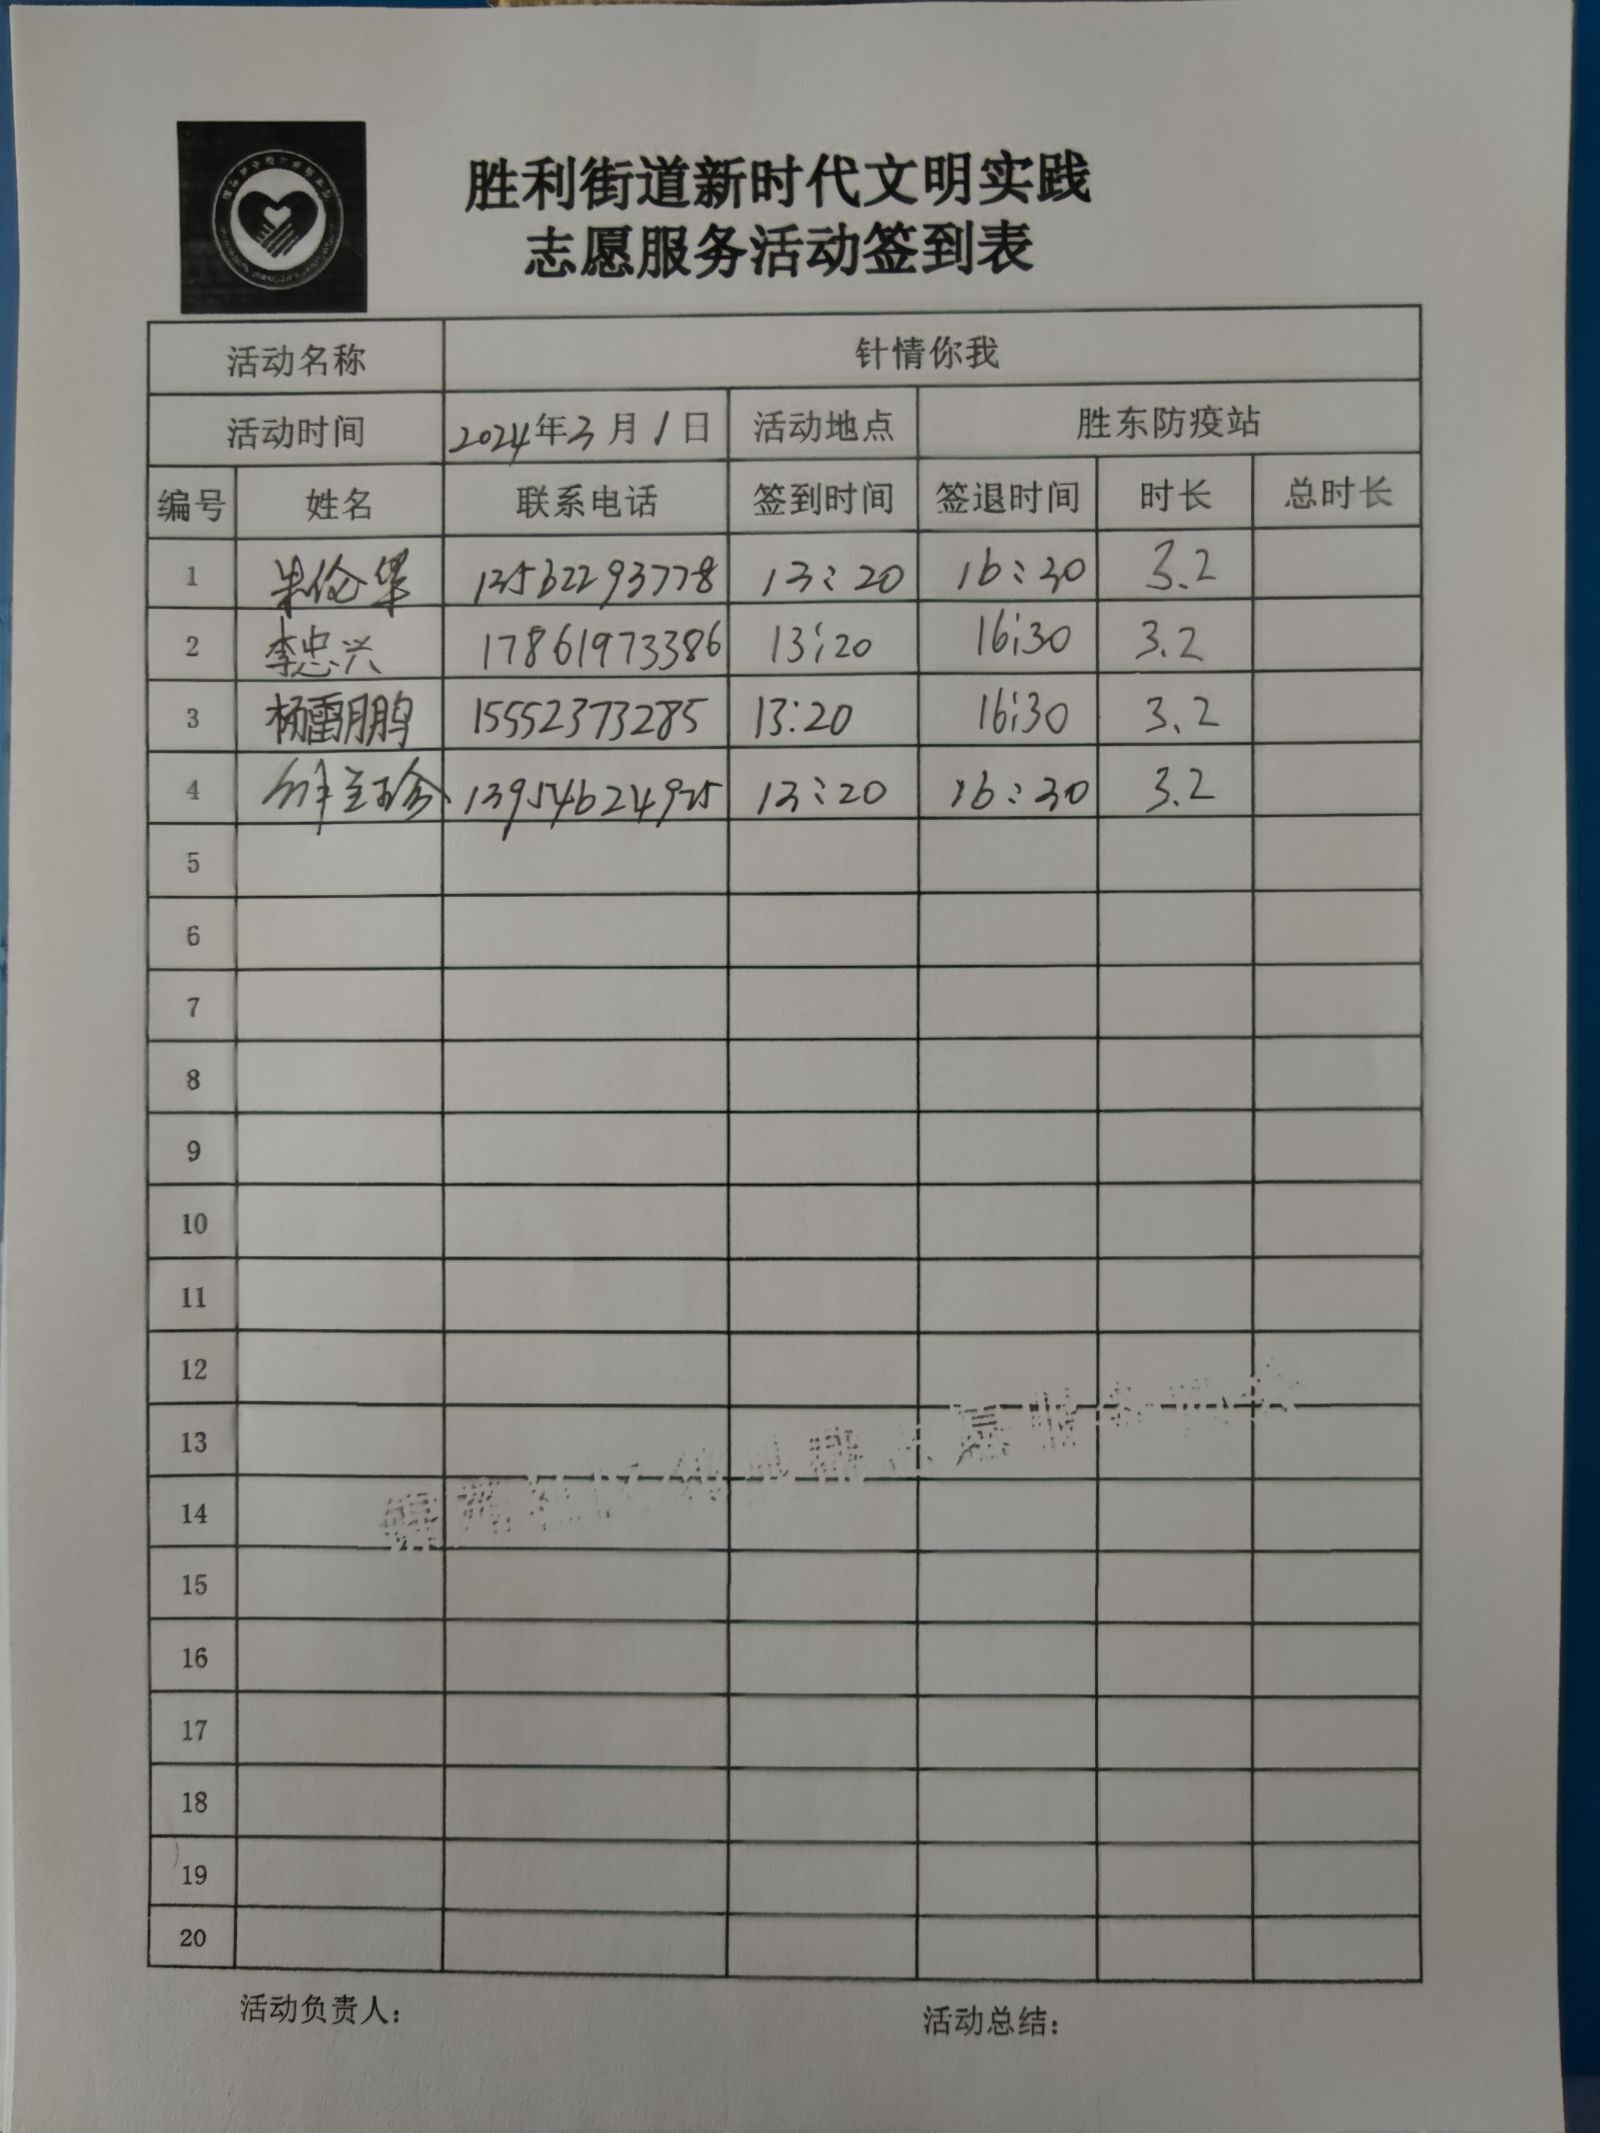 胜利街道新时代文明实践
志愿服务活动签到表
活动名称 针情你我
活动时间 2024年3月1日 活动地点 胜东防疫站
编号 姓名 联系电话 签到时间 签退时间 时长 总时长
1 朱伦华 13562293778 13:20 16:30 3.2
2 李忠兴 17861973386 13:20 16:30 3.2
3 杨雷鹏 15552373285 13:20 16:30 3.2
4 13954624925 13:20 16:30 3.2
5
6
7
8
9
10
11
12
13
14
15
16
17
18
19
20
活动负责人: 活动总结: